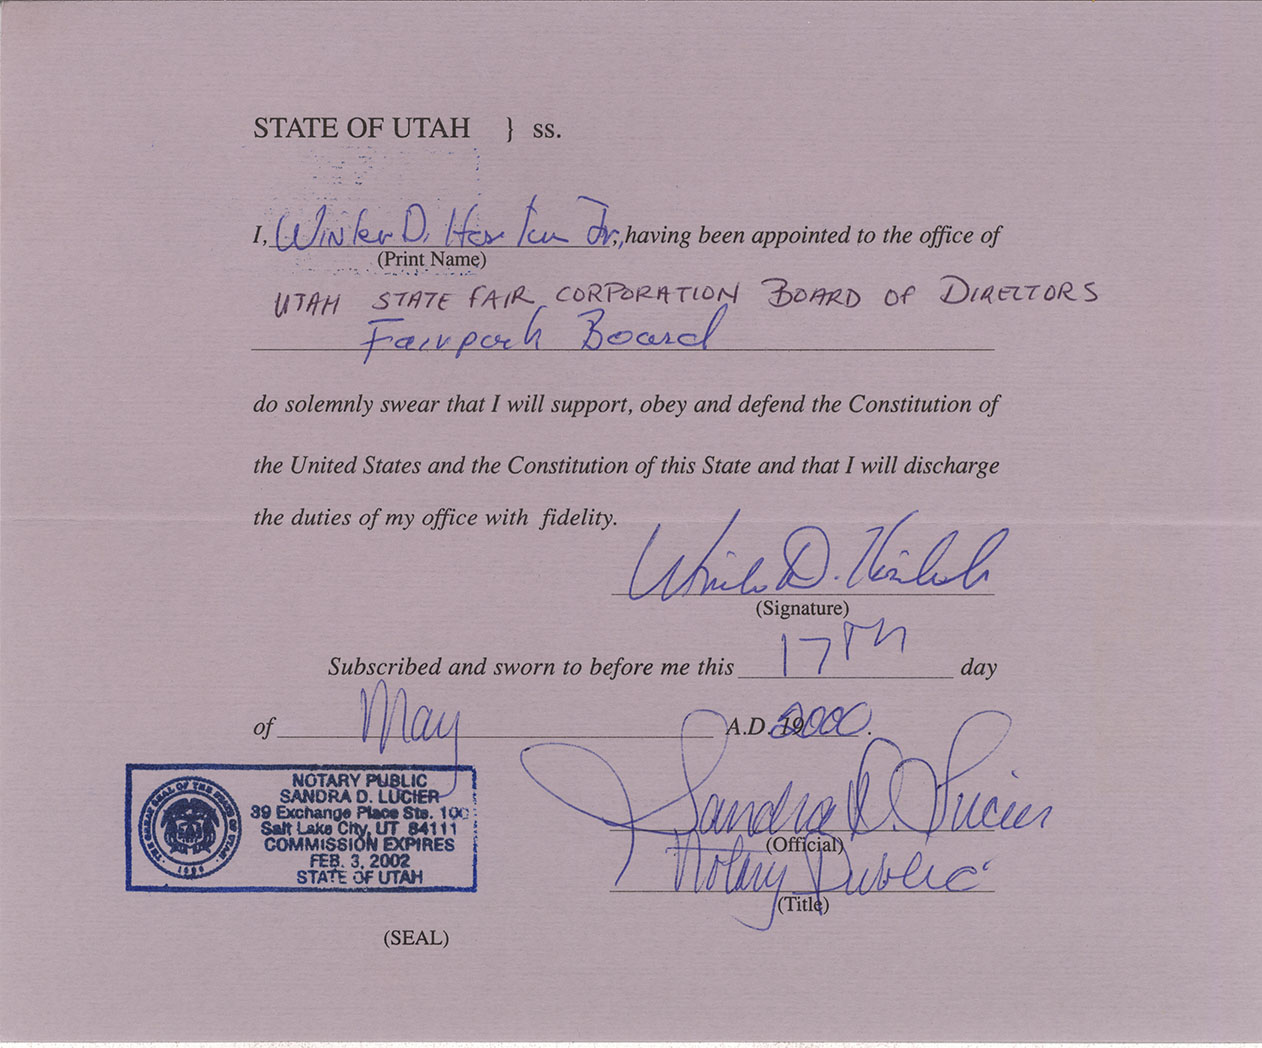 STATE OF UTAH } ss.
I, D. Jr., having been appointed to the office of
(Print Name)
UTAH STATE FAIR CORPORATION BOARD OF DIRECTORS
Fairpark Board
do solemnly swear that I will support, obey and defend the Constitution of
the United States and the Constitution of this State and that I will discharge
the duties of my office with fidelity.
D.
(Signature)
Subscribed and sworn to before me this 17TH day
of May A.D. 19 2000.
NOTARY PUBLIC
SANDRA D. LUCIER
39 Exchange Place Ste. 100
Salt Lake City, UT 84111
COMMISSION EXPIRES
FEB. 3, 2002
STATE OF UTAH
THE GREAT SEAL OF THE STATE OF UTAH
1896
Sandra D. Lucier
(Official)
Notary Public
(Title)
(SEAL)